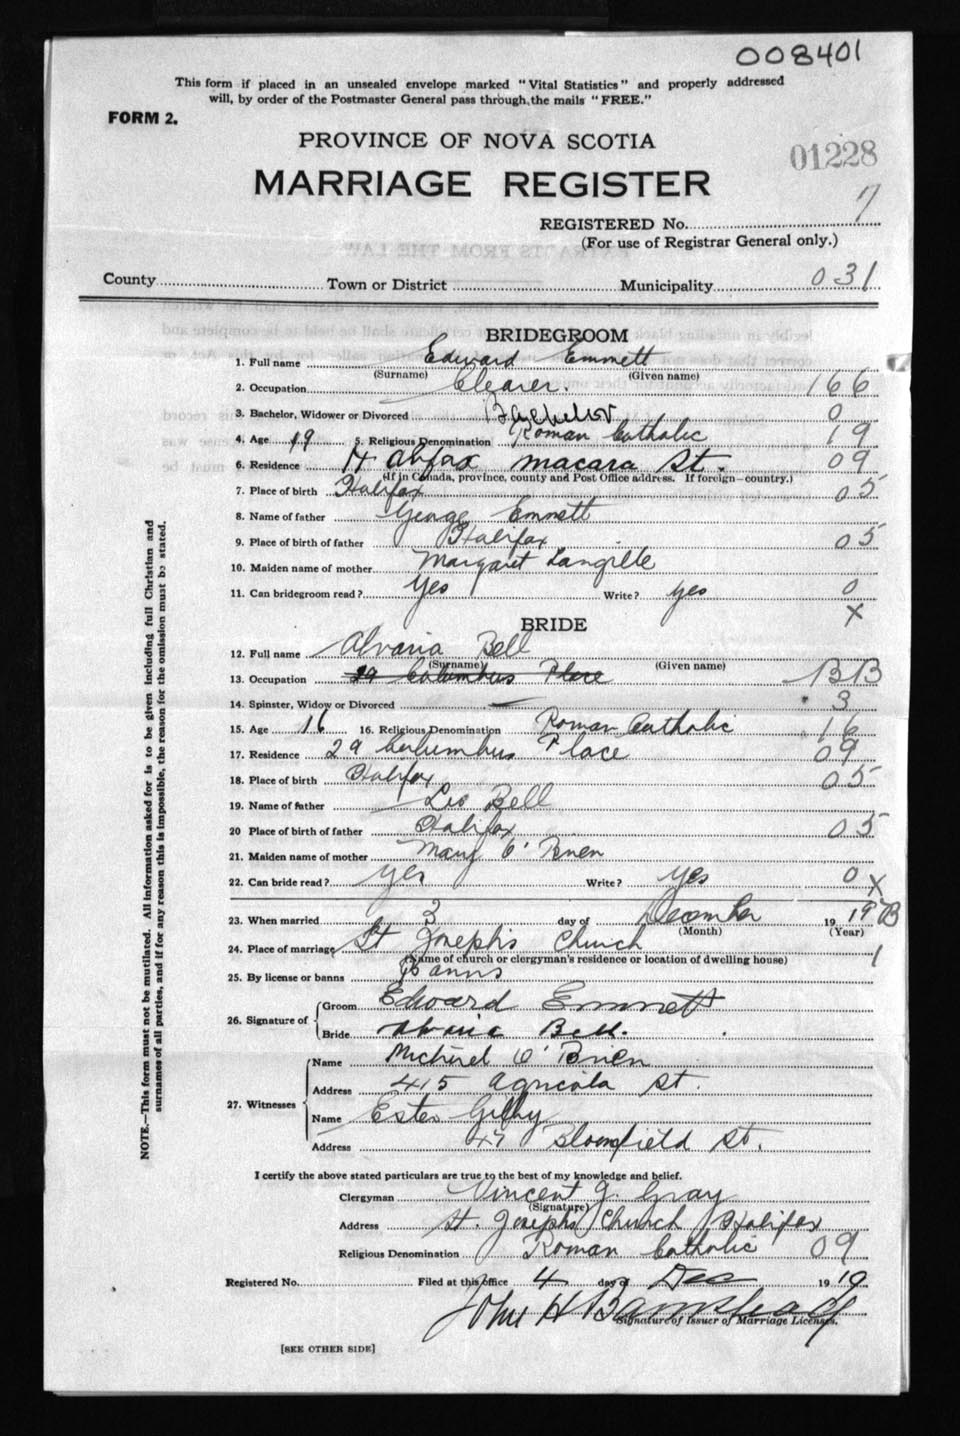 008401
This form if placed in an unsealed envelope marked "Vital Statistics" and properly addressed
will, by order of the Postmaster General pass through, the mails "FREE."
FORM 2.
PROVINCE OF NOVA SCOTIA
01228
MARRIAGE REGISTER
REGISTERED No. 7
(For use of Registrar General only.)
County Town or District Municipality 031
BRIDEGROOM
1. Full name Edward Emmett
(Surname) (Given name)
2. Occupation Clearer. 166
3. Bachelor, Widower or Divorced Bachelor 0
4. Age 19 5. Religious Denomination Roman Catholic 19
6. Residence Halifax macara St. 09
(If in Canada, province, county and Post Office address. If foreign—country.)
7. Place of birth Halifax 05
8. Name of father George Emmett
9. Place of birth of father Halifax 05
10. Maiden name of mother Margaret Langille
11. Can bridegroom read? Yes Write? yes 0
X
BRIDE
12. Full name Alvaria Bell
(Surname) (Given name)
13. Occupation 29 Columbus Place BB
14. Spinster, Widow or Divorced 3
15. Age 16 16. Religious Denomination Roman Catholic 16
17. Residence 29 Columbus Place 09
18. Place of birth Halifax 05
19. Name of father Leo Bell
20 Place of birth of father Halifax 05
21. Maiden name of mother Mary O'Brien
22. Can bride read? yes Write? yes 0 X
23. When married 3 day of December 19 19 B
(Month) (Year)
24. Place of marriage St Joseph's Church 1
(Name of church or clergyman's residence or location of dwelling house)
25. By license or banns Banns
26. Signature of Groom Edward Emmett
Bride Bell.
27. Witnesses Name Michael O'Brien
Address 415 Agricola St.
Name Ester
Address 47 Bloomfield St.
I certify the above stated particulars are true to the best of my knowledge and belief.
Clergyman Vincent J. Gray
(Signature)
Address St. Josephs Church Halifax
Religious Denomination Roman Catholic 09
Registered No. Filed at this office 4 day of Dec 19 19
John H Barnstead
Signature of Issuer of Marriage Licenses.
[SEE OTHER SIDE]
NOTE.—This form must not be mutilated. All information asked for is to be given including full Christian and
surnames of all parties, and if for any reason this is impossible, the reason for the omission must be stated.